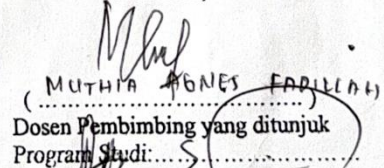 MUTHIA AGNES FADILLAH
(................................)
Dosen Pembimbing yang ditunjuk
Program Studi: